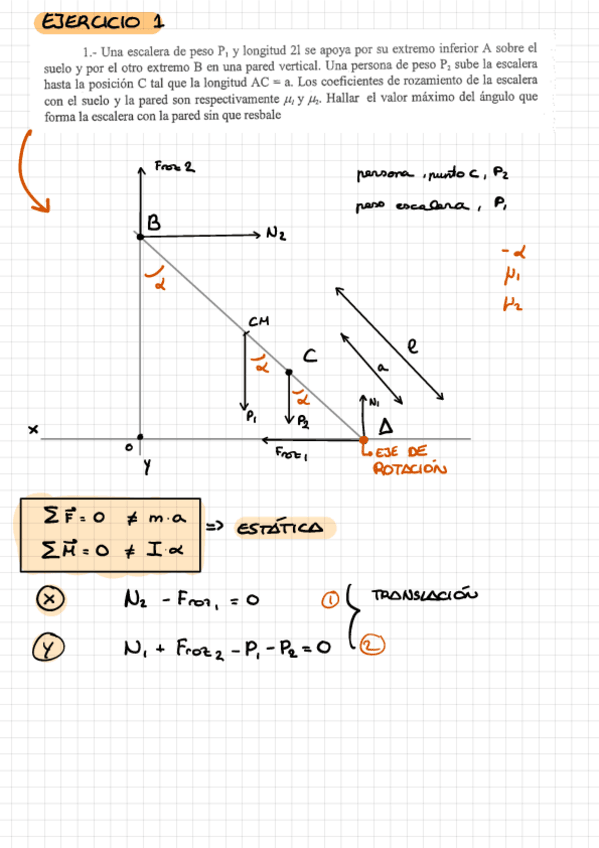 EJERCICIO 1
1.- Una escalera de peso P₁ y longitud 2l se apoya por su extremo inferior A sobre el
suelo y por el otro extremo B en una pared vertical. Una persona de peso P₂ sube la escalera
hasta la posición C tal que la longitud AC = a. Los coeficientes de rozamiento de la escalera
con el suelo y la pared son respectivamente μ₁ y μ₂. Hallar el valor máximo del ángulo que
forma la escalera con la pared sin que resbale
Froz 2
persona, punto C, P₂
peso escalera, P₁
B
N₂
- α
μ₁
μ₂
α
CM
l
C
α
a
α
P₁
P₂
N₁
A
x
0
Y
Froz₁
EJE DE
ROTACIÓN
Σ F⃗ = 0 ≠ m·a
Σ M⃗ = 0 ≠ I·α
=> ESTÁTICA
X N₂ - Froz₁ = 0 1 TRANSLACIÓN
Y N₁ + Froz 2 - P₁ - P₂ = 0 2